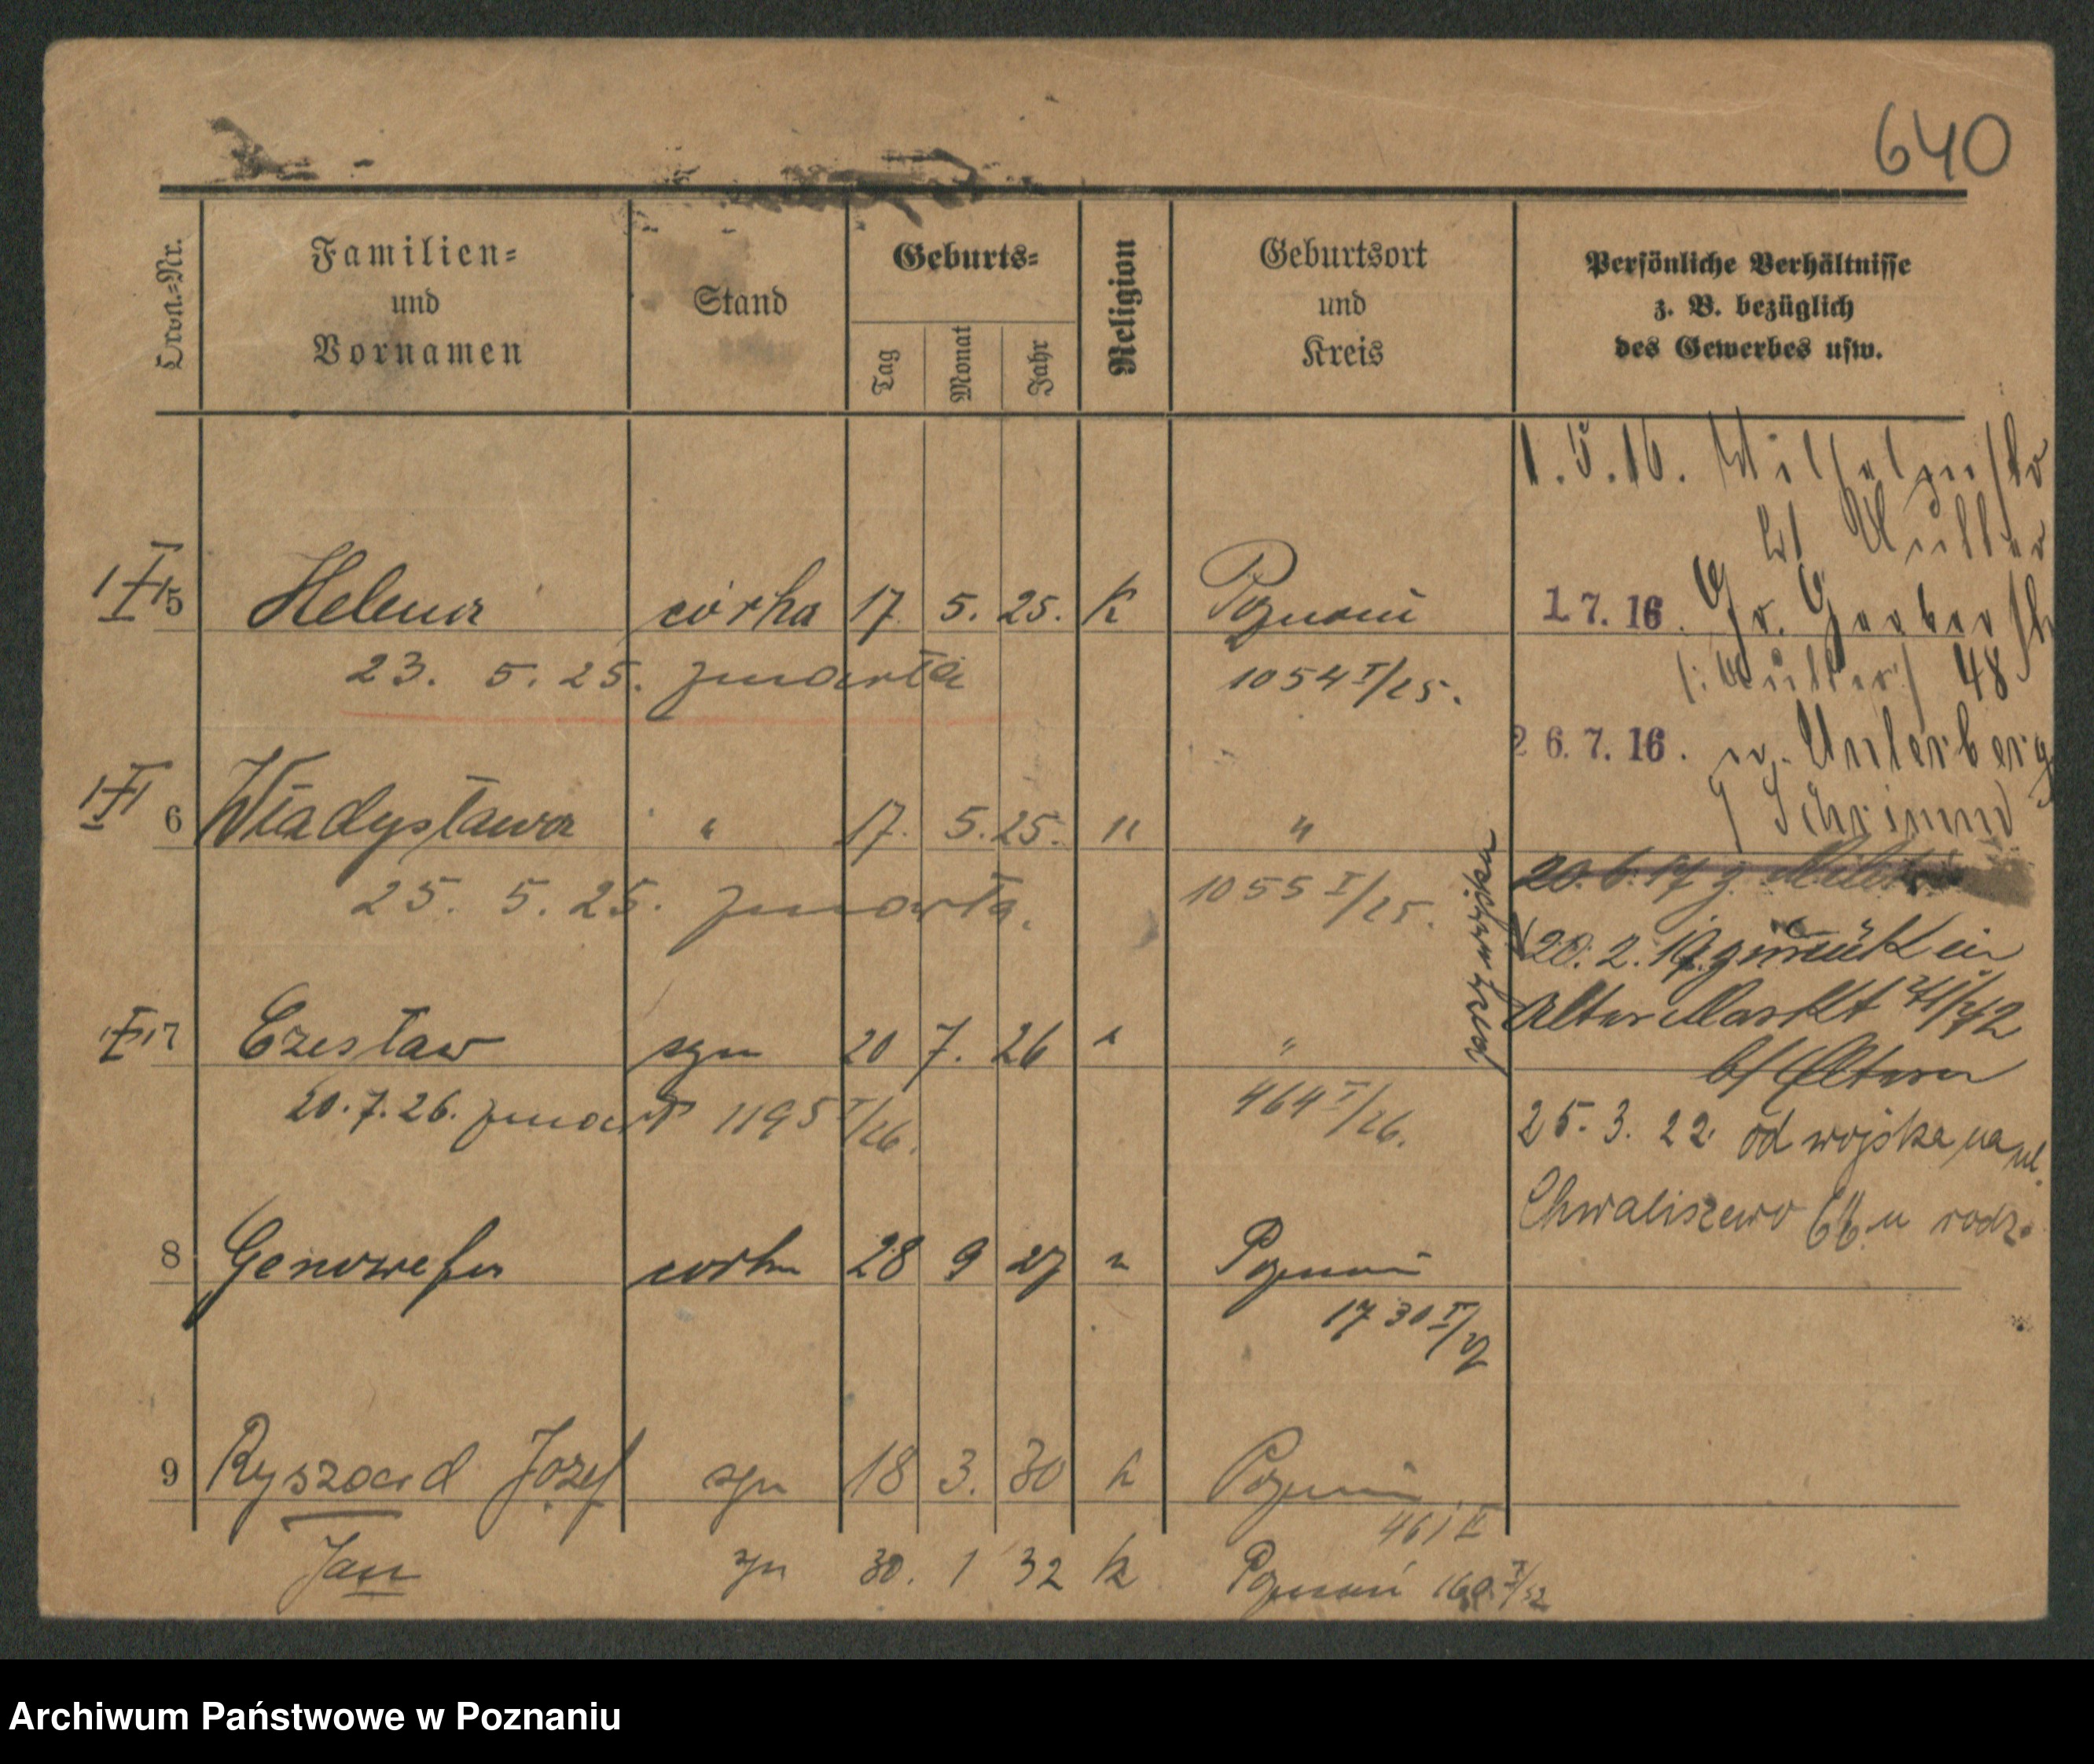 640
Ordn.=Nr.
Familien=
und
Vornamen
Stand
Geburts=
Tag
Monat
Jahr
Religion
Geburtsort
und
Kreis
Persönliche Verhältnisse
z. B. bezüglich
des Gewerbes usw.
1.5.16.
b/ Müller
5 Helena córka 17. 5. 25. K Poznań
1.7.16. Gr. Gerberstr
23. 5. 25. zmarła 1054 I/25.
/: Müller/ 48
26.7.16. n. Unterberg
Schrimm
6 Władysława " 17. 5. 25. " "
20. 6. 17 z. Militär
25. 5. 25. zmarła. 1055 I/25.
przy wojsku
20. 2. 19. zurück in
Alter Markt 41/42
b/ Eltern
7 Czesław syn 20 7. 26 " "
20. 7. 26. zmarł 1195 I/26. 464 I/26.
25. 3. 22. od wojska na ul.
Chwaliszewo 66 u rodz.
8 Genowefa córka 28 9 27 " Poznań
1730 I/27
9 Ryszard Józef syn 18 3. 30 k Poznań
461 II
Jan syn 30. 1 32 k Poznań 160 I/32
Archiwum Państwowe w Poznaniu